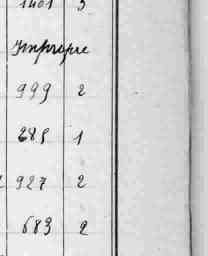 1401 3
Impropre
999 2
685 1
927 2
683 2